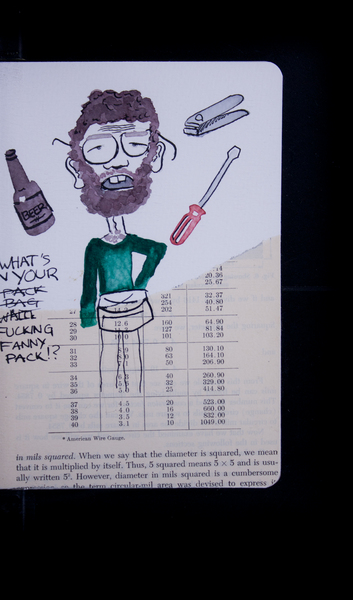 BEER
WHAT'S
N YOUR
PACK
BAG
WAIT
FUCKING
FANNY
PACK!?
20.36
25.67
321 32.37
254 40.80
202 51.47
28 12.6 160 64.90
29 128 81.84
30 101 103.20
31 80 130.10
32 63 164.10
33 50 206.90
34 40 260.90
35 32 329.00
36 5.0 25 414.80
37 4.5 20 523.00
38 4.0 16 660.00
39 3.5 12 832.00
40 3.1 10 1049.00
* American Wire Gauge.
in mils squared. When we say that the diameter is squared, we mean
that it is multiplied by itself. Thus, 5 squared means 5 × 5 and is usu-
ally written 5². However, diameter in mils squared is a cumbersome
expression, so the term circular-mil area was devised to express it